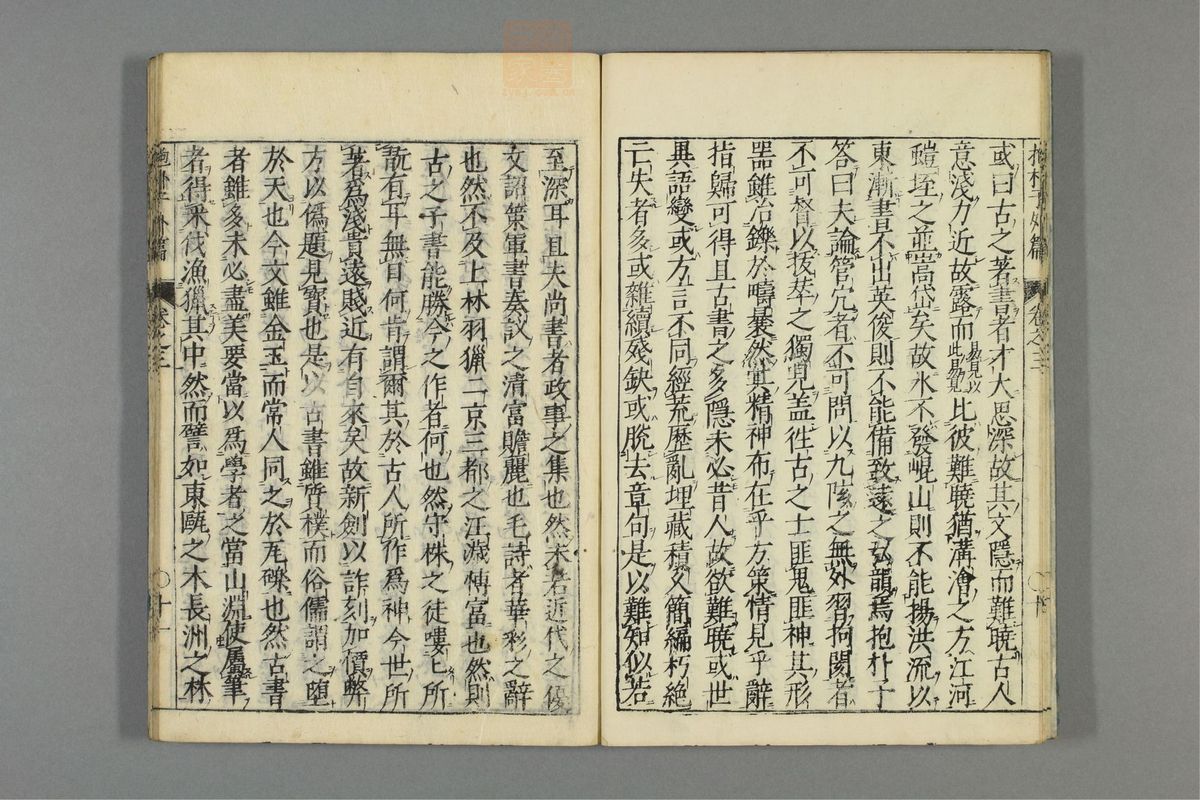 抱朴子外篇 卷之三 〇十
或曰古之著書者才大思深故其文隱而難曉古人
意淺力近故露而易見以此易見比彼難曉猶溝澮之方江河
螘垤之並嵩岱矣故水不發崐山則不能揚洪流以
東漸書不出英俊則不能備致遠之弘韻焉抱朴子
答曰夫論管穴者不可問以九陔之無外習拘閡者
不可督以拔萃之獨見盖徃古之士匪鬼匪神其形
噐雖冶鑠於疇曩然其精神布在乎方策情見乎辭
指歸可得且古書之多隱未必昔人故欲難曉或世
異語變或方言不同經荒歷亂埋藏積久簡編朽絕
亡失者多或雜續殘缺或脫去章句是以難知似若
至深耳且夫尚書者政事之集也然未若近代之優
文詔策軍書奏議之清富贍麗也毛詩者華彩之辭
也然不及上林羽獵二京三都之汪濊博富也然則
古之子書能勝今之作者何也然守株之徒嘍嘍所
翫有耳無目何肯謂爾其於古人所作爲神今世所
著爲淺貴遠賤近有自來矣故新劍以詐刻加價弊
方以僞題見寳也是以古書雖質樸而俗儒謂之墮
於天也今文雖金玉而常人同之於瓦礫也然古書
者雖多未必盡美要當以爲學者之當山淵使屬筆
者得采伐漁獵其中然而譬如東甌之木長洲之林
抱朴子外篇 卷之三 〇十一